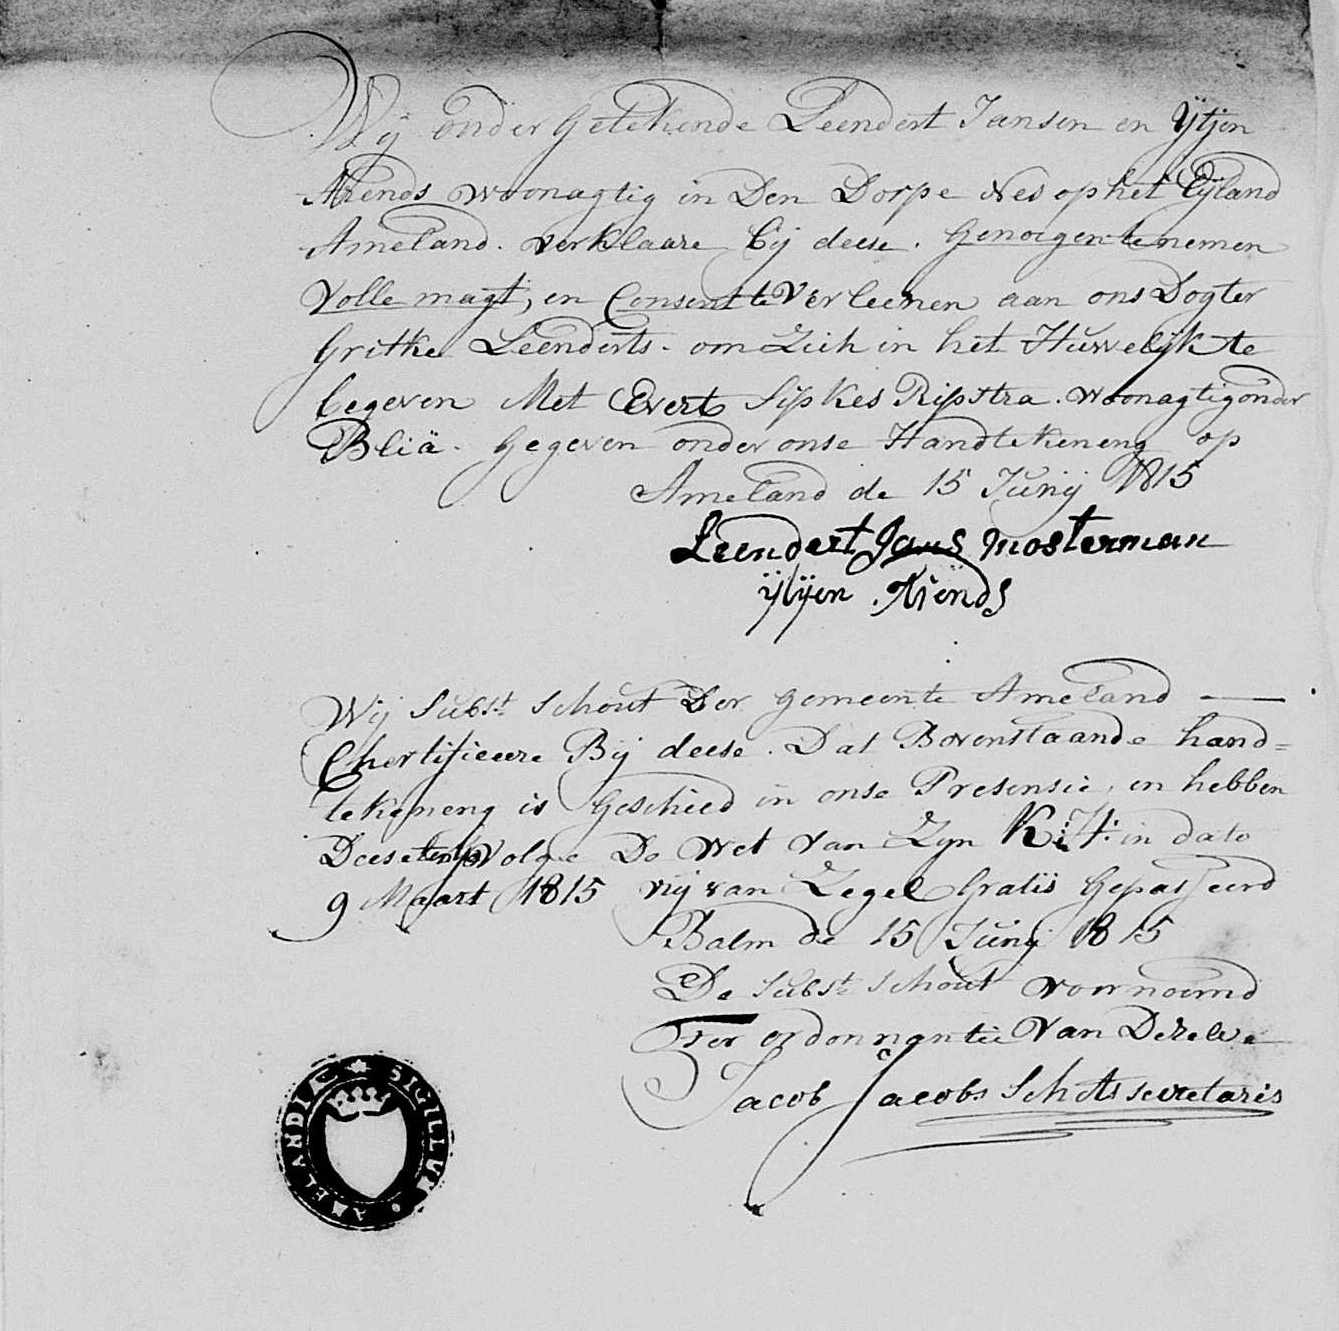 Wij onder Getekende Leendert Jansen en Ytjen
Arends woonagtig in Den Dorpe Nes op het Eyland
Ameland. verklaare bij deese. Genoegen te nemen
Volle magt, en Consent te Verleenen aan ons Dogter
Gritke Leenderts. om Zich in het Huwelijk te
begeven Met Evert Sipkes Ripstra. woonagtig onder
Bliä. Gegeven onder onse Handtekeneng op
Ameland de 15 Junij 1815
Leendert Jans Mosterman
ÿtÿen Arends
Wij Subst. Schout Der Gemeente Ameland
Chertifieere Bij deese. Dat Bovenstaande hand=
tekeneng is Geschied in onse Presensie, en hebben
Deese Volge De Wet van Zyn K: H: in dato
9 Maart 1815 vrij van Zegel Gratis Gepasseerd
Balm de 15 Junij 1815
De Subst. Schout voornoemd
Ter ordonnantie Van Dezelve
Jacob Jacobs Schots secretaris
SIGILLUM AMELANDIÆ